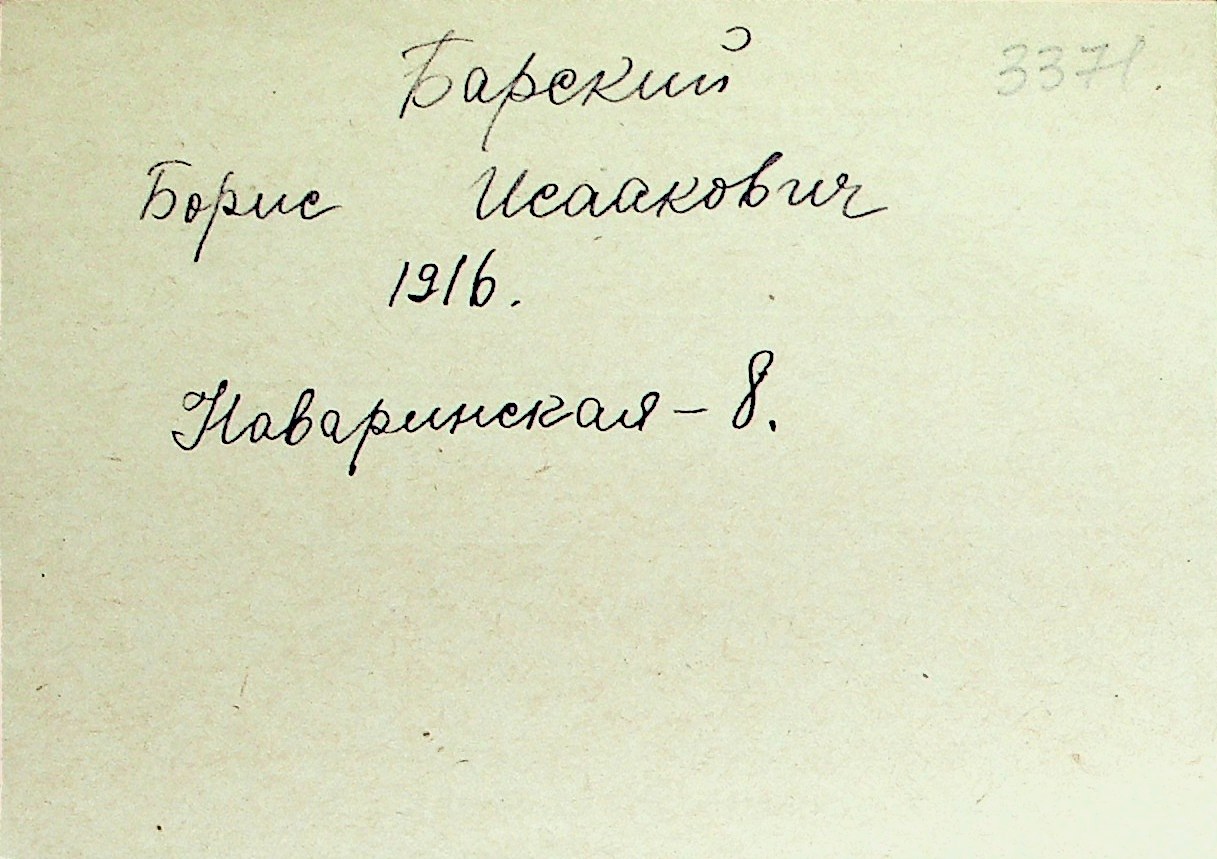 Барский 3371
Борис Исаакович
1916.
Наваринская – 8.